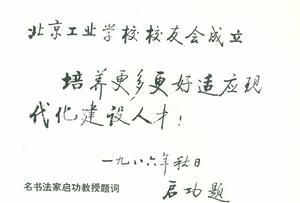 北京工业学校校友会成立
培养更多更好适应现
代化建设人才！
一九八六年秋日
启功题
名书法家启功教授题词